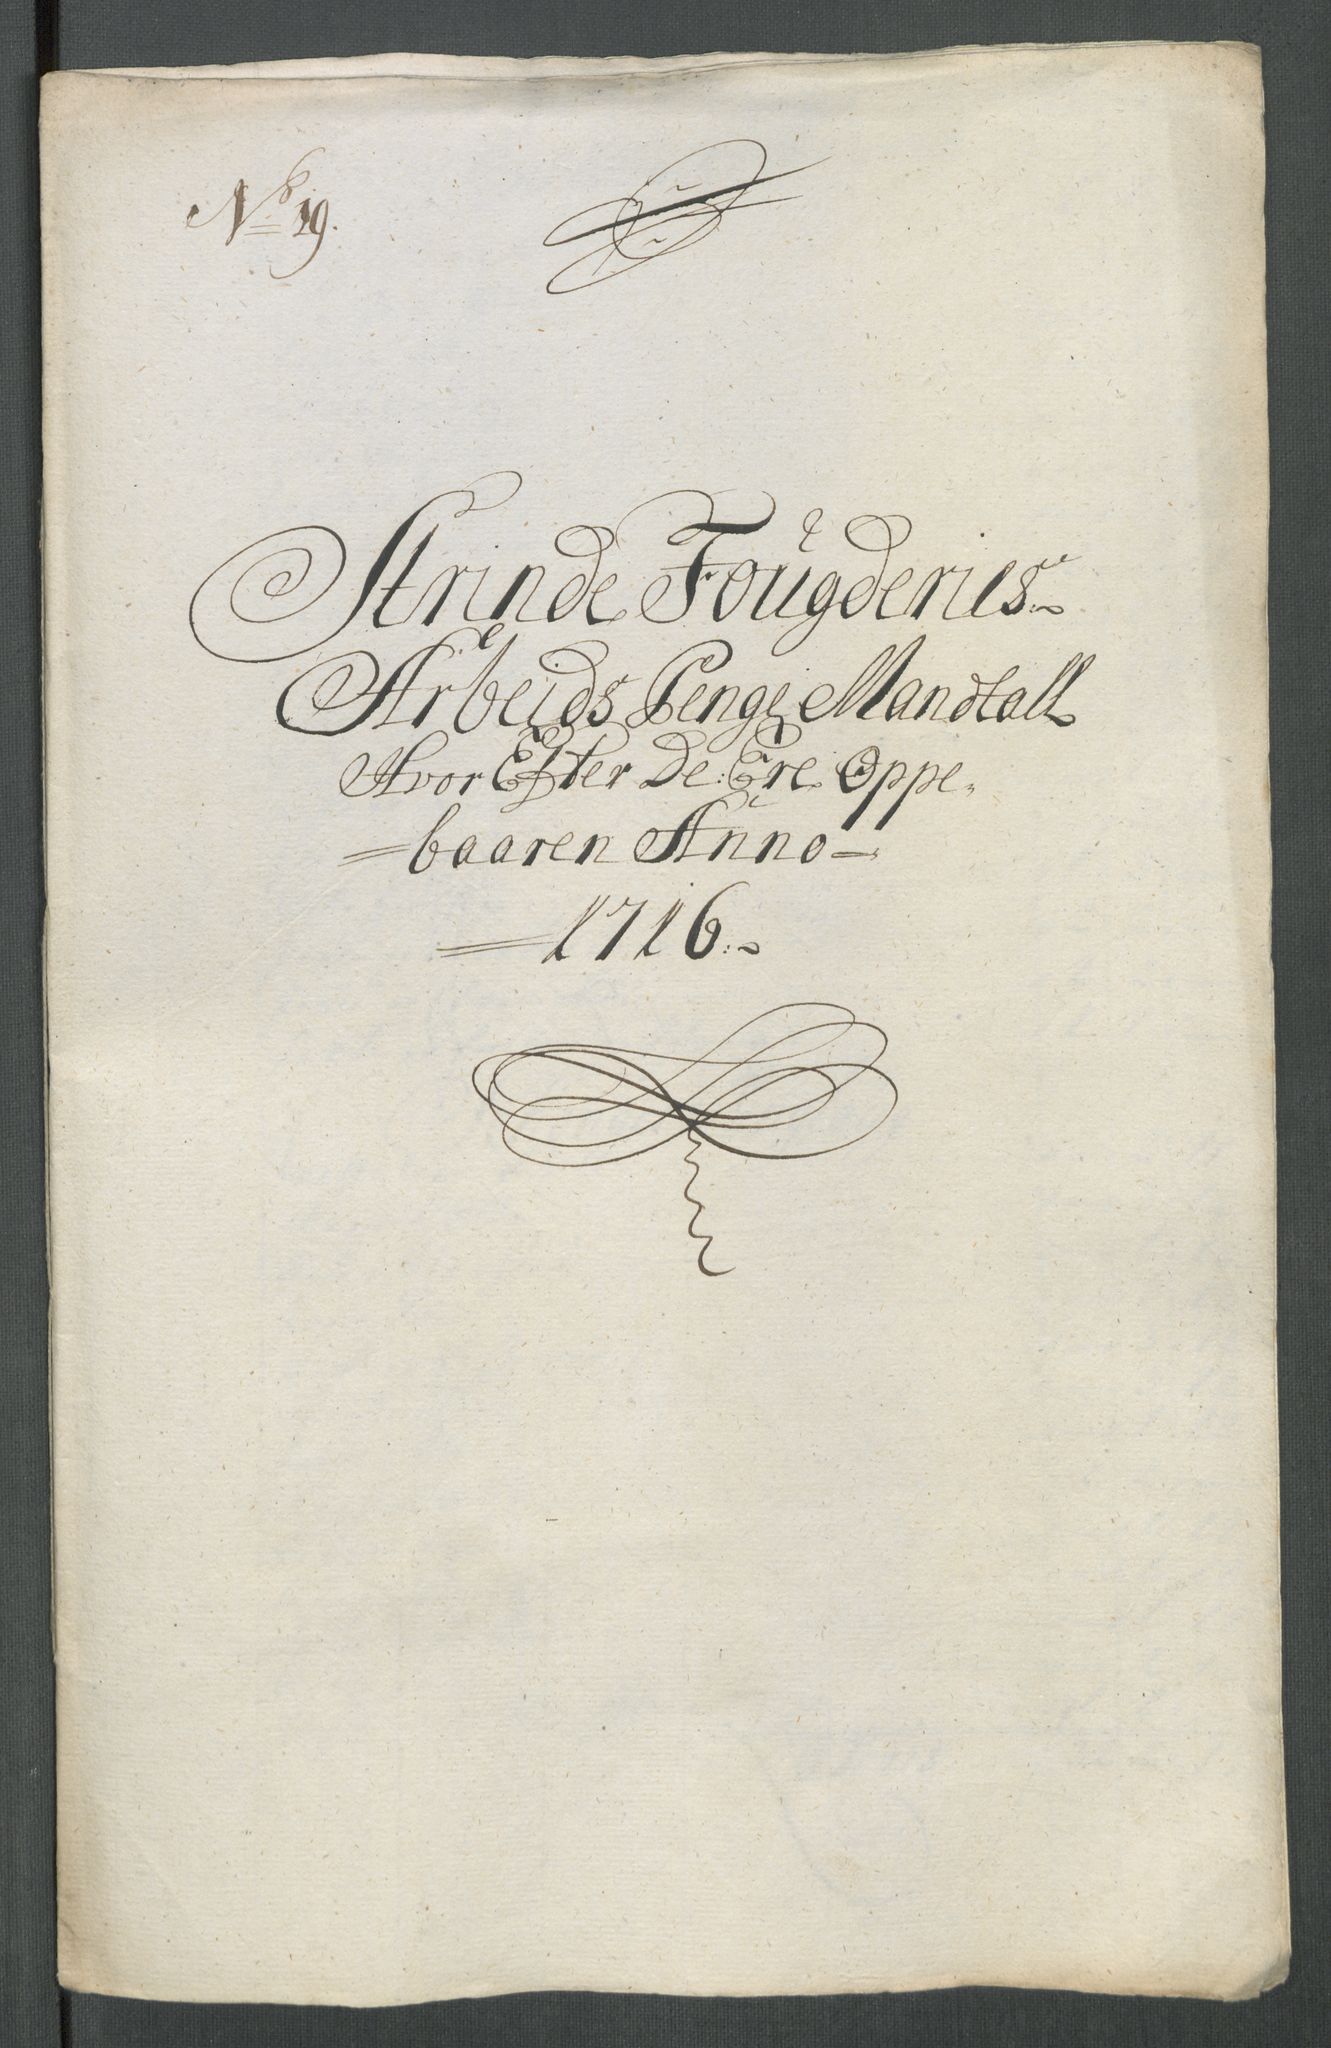 No 19.
Strinde Fougderies
Arbeids Penge Mandtall
Hvor Efter De: Ere Oppe-
baaren Anno
1716.